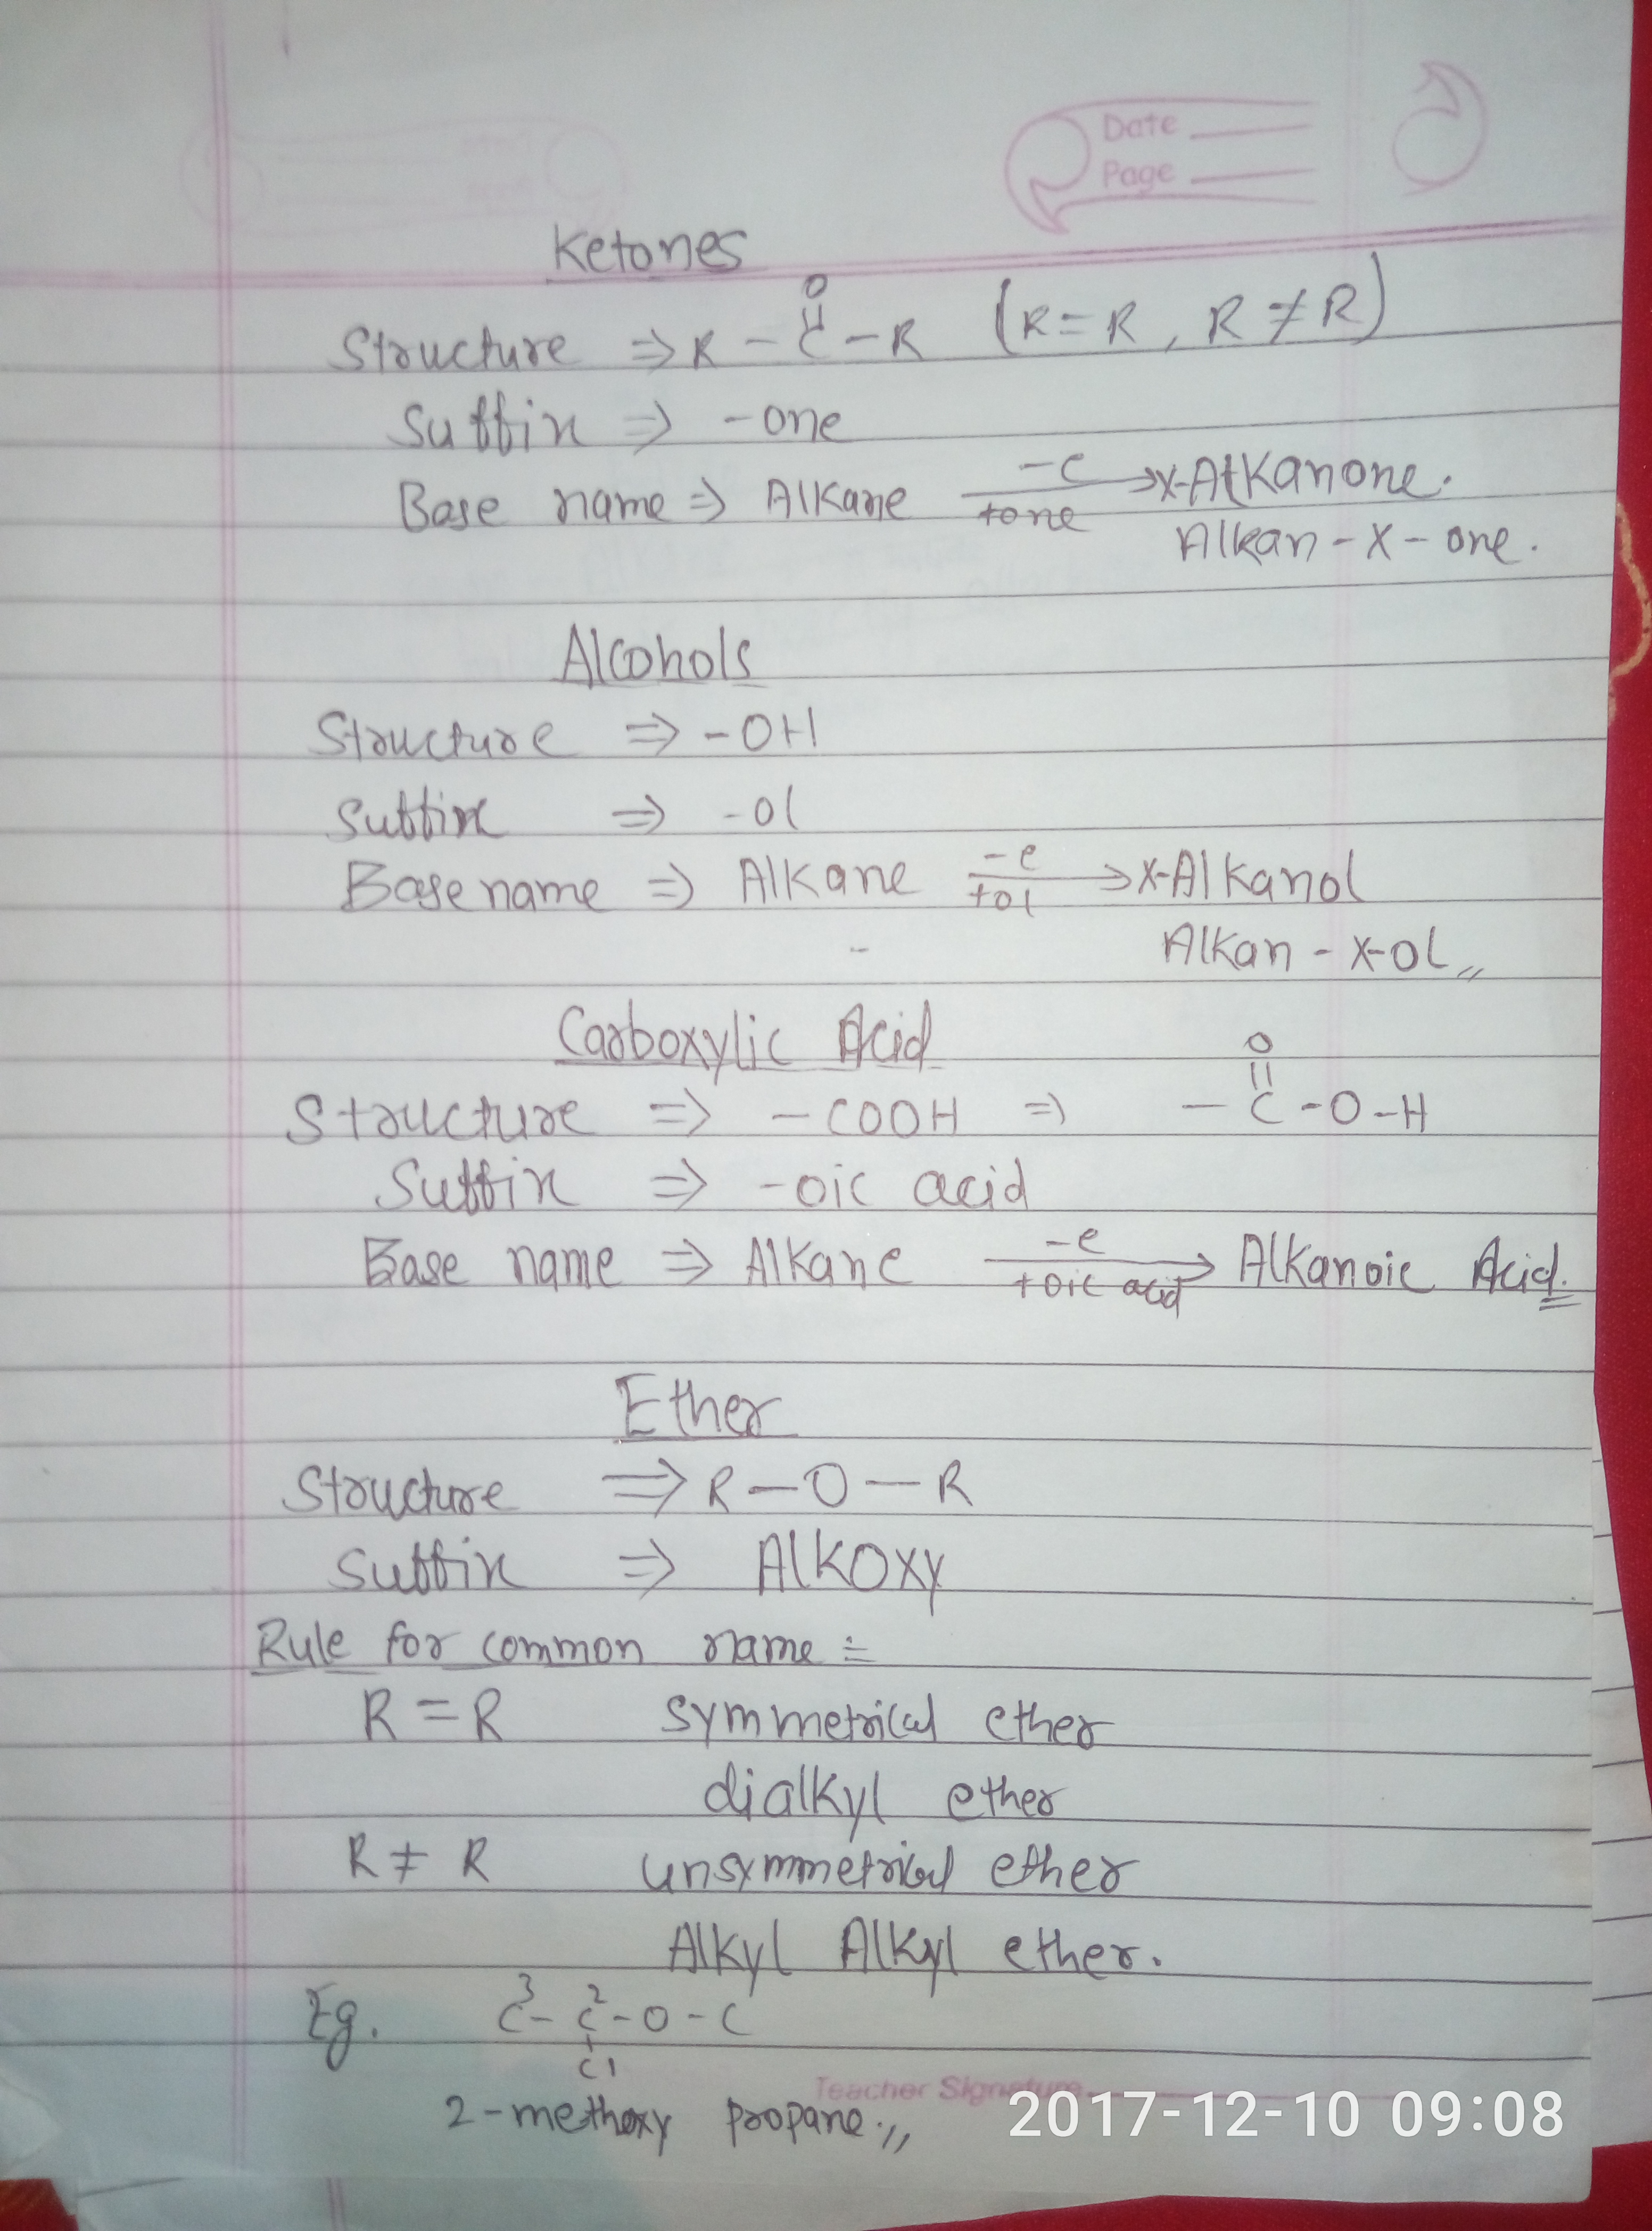 Date
Page
Ketones
O
||
Structure ⇒ R - C - R (R = R, R ≠ R)
Suffix ⇒ -one
Base name ⇒ Alkane -e +one → X-Alkanone.
Alkan - X - one.
Alcohols
Structure ⇒ -OH
Suffix ⇒ -ol
Base name ⇒ Alkane -e +ol → X-Alkanol
Alkan - X-OL
Carboxylic Acid
O
||
Structure ⇒ -COOH ⇒ - C - O - H
Suffix ⇒ -oic acid
Base name ⇒ Alkane -e +oic acid → Alkanoic Acid.
Ether
Structure ⇒ R - O - R
Suffix ⇒ Alkoxy
Rule for common name =
R = R symmetrical ether
dialkyl ether
R ≠ R unsymmetrical ether
Alkyl Alkyl ether.
3 2
Eg. C - C - O - C
C1
Teacher Signature
2-methoxy propane.
2017-12-10 09:08